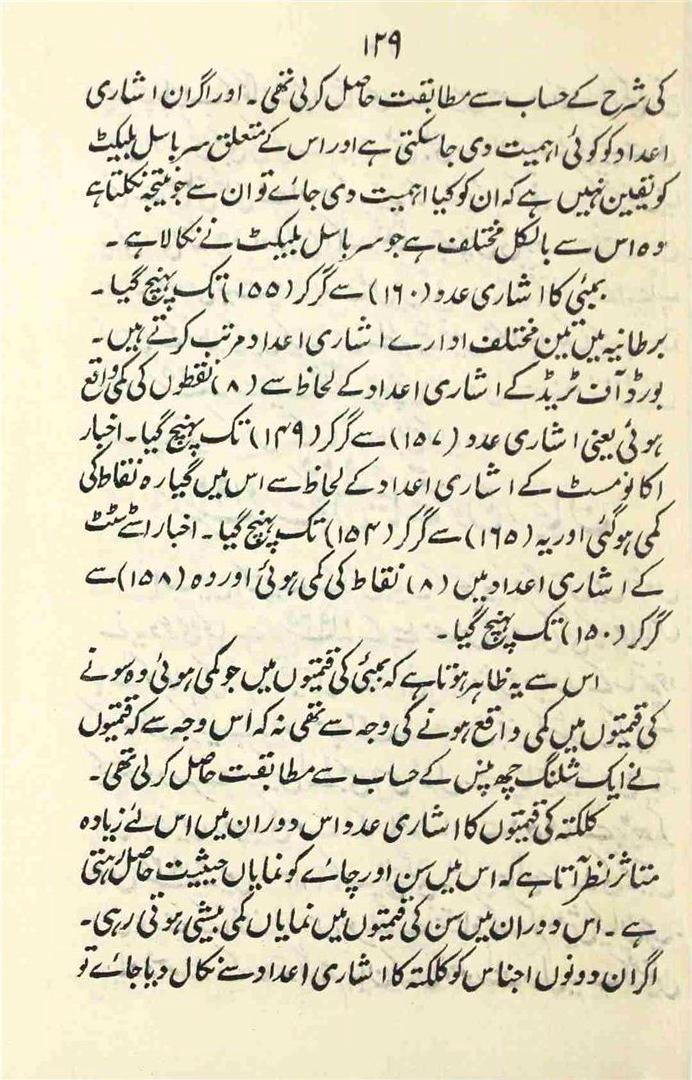 ۱۲۹
کی شرح کے حساب سے مطابقت حاصل کرلی تھی۔ اور اگر ان اشاری
اعداد کو کوئی اہمیت دی جاسکتی ہے اور اس کے متعلق سر باسل بلیکیٹ
کو یقین نہیں ہے کہ ان کو کیا اہمیت دی جائے تو ان سے جو نتیجہ نکلتا ہے
وہ اس سے بالکل مختلف ہے جو سر باسل بلیکٹ نے نکالا ہے ۔
بمبئی کا اشاری عدد (۱۶۰) سے گر کر (۱۵۵) تک پہنچ گیا ۔
برطانیہ میں تین مختلف ادارے اشاری اعداد مرتب کرتے ہیں۔
بورڈ آف ٹریڈ کے اشاری اعداد کے لحاظ سے (۸) نقطوں کی کمی واقع
ہوئی یعنی اشاری عدد (۱۵۷) سے گر کر (۱۴۹) تک پہنچ گیا۔ اخبار
اکانومسٹ کے اشاری اعداد کے لحاظ سے اس میں گیارہ نقاط کی
کمی ہوگئی اور یہ (۱۶۵) سے گر کر (۱۵۴) تک پہنچ گیا۔ اخبار اسٹے ٹسٹ
کے اشاری اعداد میں (۸) نقاط کی کمی ہوئی اور وہ (۱۵۸) سے
گر کر (۱۵۰) تک پہنچ گیا۔
اس سے یہ ظاہر ہوتا ہے کہ بمبئی کی قیمتوں میں جو کمی ہوئی وہ سونے
کی قیمتوں میں کمی واقع ہونے کی وجہ سے تھی نہ کہ اس وجہ سے کہ قیمتوں
نے ایک شلنگ چھ پنس کے حساب سے مطابقت حاصل کرلی تھی۔
کلکتہ کی قیمتوں کا اشاری عدد اس دوران میں اس لئے زیادہ
متاثر نظر آتا ہے کہ اس میں سن اور چائے کو نمایاں حیثیت حاصل رہتی
ہے ۔ اس دوران میں سن کی قیمتوں میں نمایاں کمی بیشی ہوتی رہی۔
اگر ان دونوں اجناس کو کلکتہ کا اشاری اعداد سے نکال دیا جائے تو